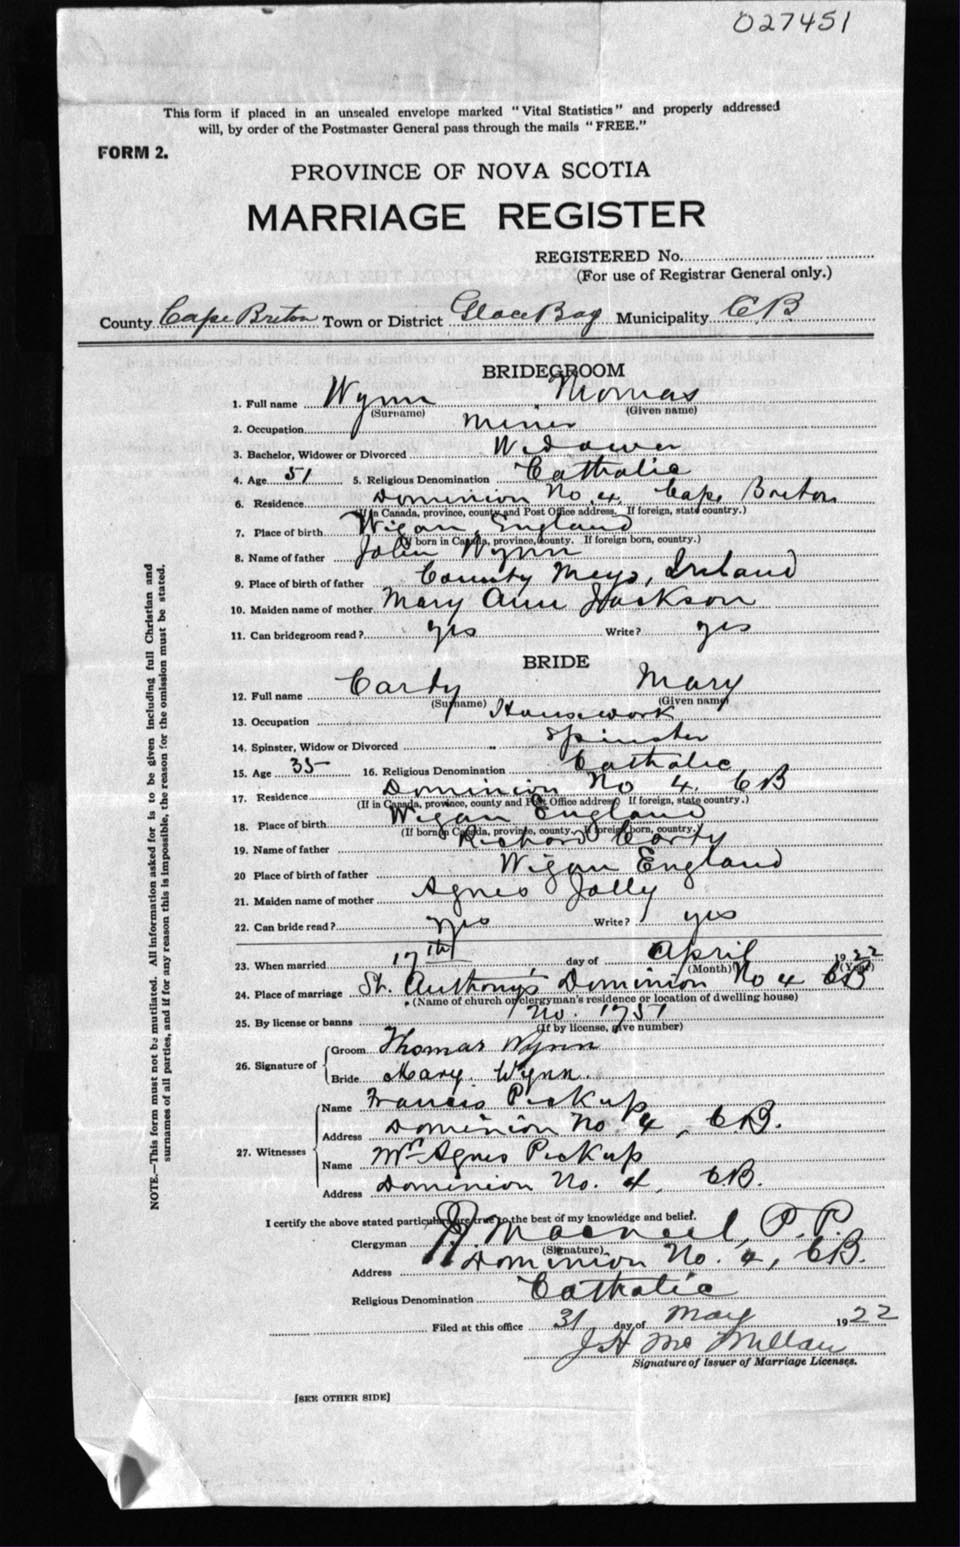 027451
This form if placed in an unsealed envelope marked "Vital Statistics" and properly addressed
will, by order of the Postmaster General pass through the mails "FREE."
FORM 2.
PROVINCE OF NOVA SCOTIA
MARRIAGE REGISTER
REGISTERED No.
(For use of Registrar General only.)
County Cape Breton Town or District Glace Bay Municipality C B
BRIDEGROOM
1. Full name Wynn Thomas
(Surname) (Given name)
2. Occupation Miner
3. Bachelor, Widower or Divorced Widower
4. Age 51 5. Religious Denomination Catholic
6. Residence Dominion No 4, Cape Breton
(If in Canada, province, county and Post Office address. If foreign, state country.)
7. Place of birth Wigan, England
(If born in Canada, province, county. If foreign born, country.)
8. Name of father John Wynn
9. Place of birth of father County Mayo, Ireland
10. Maiden name of mother Mary Ann Jackson
11. Can bridegroom read? yes Write? yes
BRIDE
12. Full name Carty Mary
(Surname) (Given name)
13. Occupation Housework
14. Spinster, Widow or Divorced Spinster
15. Age 35 16. Religious Denomination Catholic
17. Residence Dominion No 4. CB
(If in Canada, province, county and Post Office address. If foreign, state country.)
18. Place of birth Wigan England
(If born in Canada, province, county. If foreign born, country.)
19. Name of father Richard Carty
20 Place of birth of father Wigan England
21. Maiden name of mother Agnes Jolly
22. Can bride read? yes Write? yes
23. When married 17th day of April 1922
(Month) (Year)
24. Place of marriage St. Anthony's Dominion No 4 CB
(Name of church or clergyman's residence or location of dwelling house)
25. By license or banns No. 1751
(If by license, give number)
26. Signature of Groom Thomas Wynn
Bride Mary Wynn.
27. Witnesses Name Francis Pickup
Address Dominion No. 4, C.B.
Name Mrs Agnes Pickup
Address Dominion No. 4, C.B.
I certify the above stated particulars are true to the best of my knowledge and belief.
Clergyman MacNeil, P.P.
(Signature)
Address Dominion No. 4, CB.
Religious Denomination Catholic
Filed at this office 31 day of May 1922
J H McMillan
Signature of Issuer of Marriage Licenses.
[SEE OTHER SIDE]
NOTE.—This form must not be mutilated. All information asked for is to be given including full Christian and
surnames of all parties, and if for any reason this is impossible, the reason for the omission must be stated.